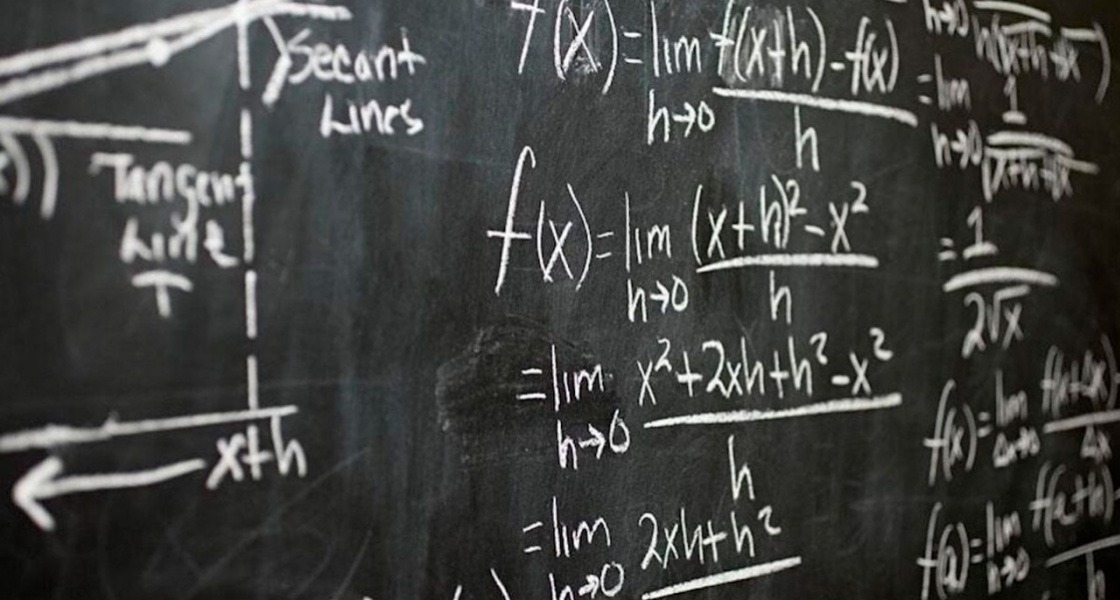 Secant
Lines
Tangent
Line
T
x+h
f(x)=lim h→0 f(x+h)-f(x) / h
f(x)=lim h→0 (x+h)²-x² / h
=lim h→0 x²+2xh+h²-x² / h
=lim h→0 2xh+h²
h→0 h(√x+h+√x)
=lim h→0 1 / √x+h+√x
=1 / 2√x
f(x)=lim Δx→0 f(x+Δx) / Δx
f(a)=lim h→0 f(a+h) / h